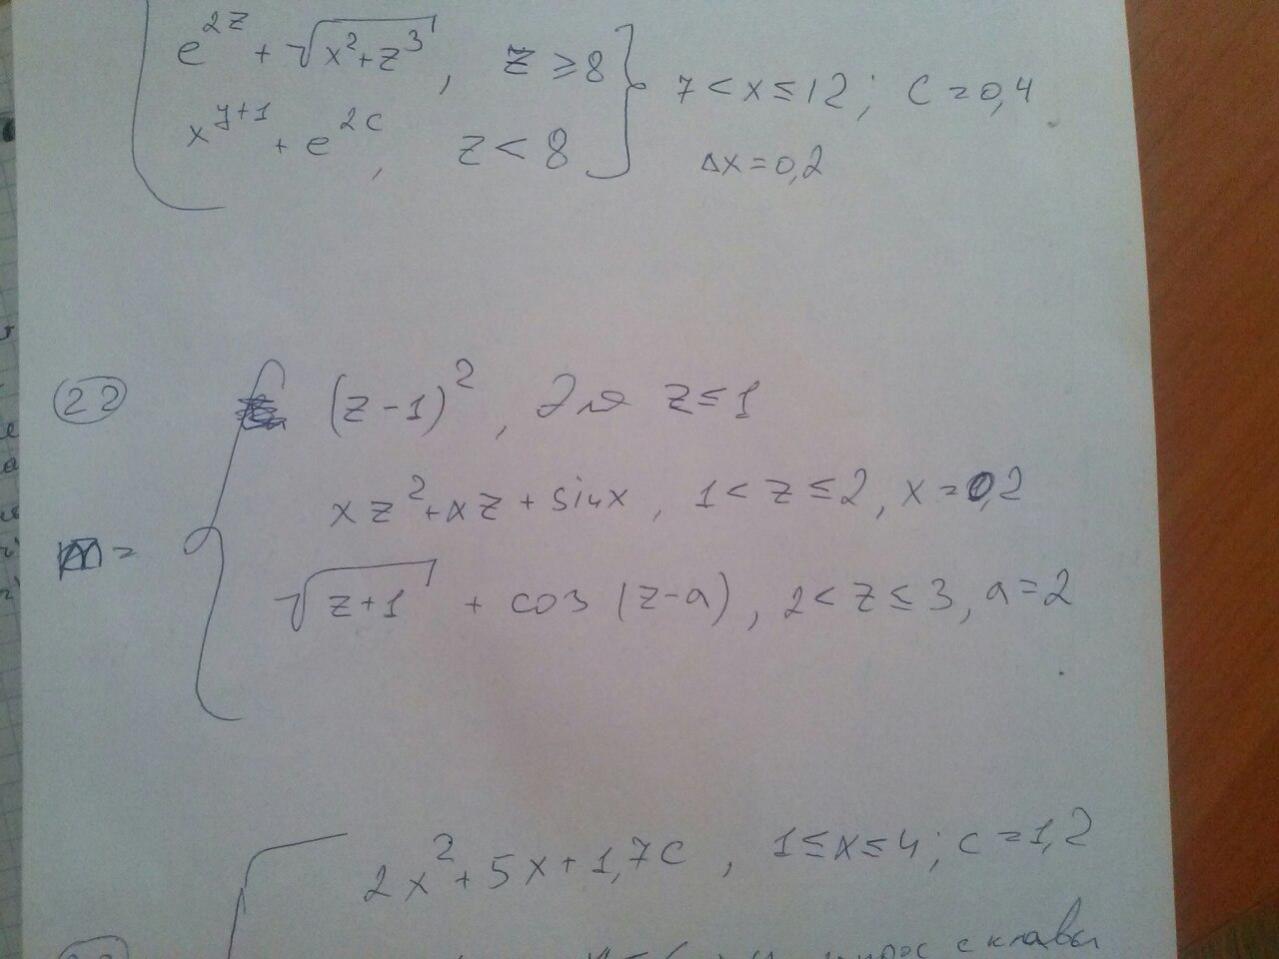 e^2z + √x²+z³, z ≥ 8 } 7 < x ≤ 12; c = 0,4
x^y+1 + e^2c, z < 8 Δx = 0,2
22
(z-1)², для z ≤ 1
m = { xz² + xz + sin x, 1 < z ≤ 2, x = 0,2
√z+1 + cos (z-a), 2 < z ≤ 3, a = 2
2x² + 5x + 1,7c, 1 ≤ x ≤ 4; c = 1,2
с клавы